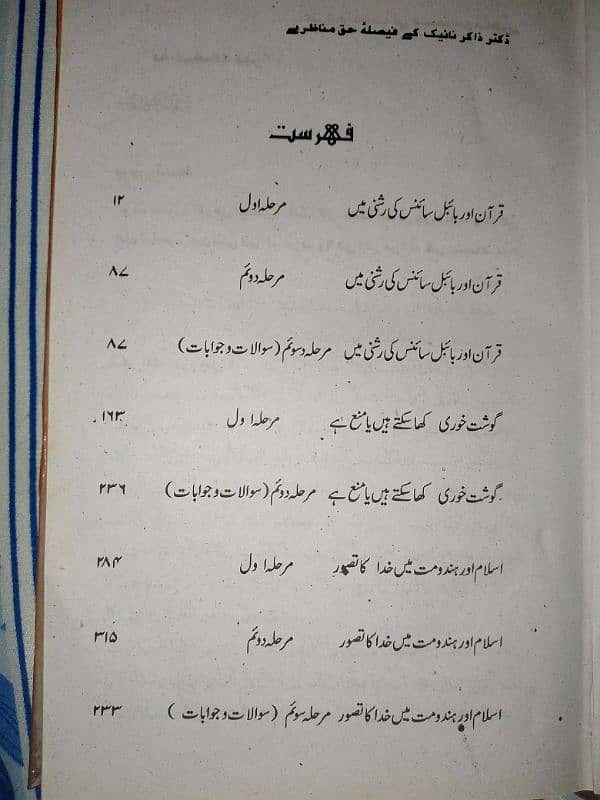 ڈکتر ذاکر نائیک کے فیصلۂ حق مناظرے
فہرست
قرآن اور بائبل سائنس کی رشنی میں مرحلہ اول ۱۲
قرآن اور بائبل سائنس کی رشنی میں مرحلہ دوئم ۸۷
قرآن اور بائبل سائنس کی رشنی میں مرحلہ دسوئم (سوالات و جوابات) ۸۷
گوشت خوری کھا سکتے ہیں یا منع ہے مرحلہ اول ۱۶۳
گوشت خوری کھا سکتے ہیں یا منع ہے مرحلہ دوئم (سوالات و جوابات) ۲۳۶
اسلام اور ہندومت میں خدا کا تصور مرحلہ اول ۲۸۴
اسلام اور ہندومت میں خدا کا تصور مرحلہ دوئم ۳۱۵
اسلام اور ہندومت میں خدا کا تصور مرحلہ سوئم (سوالات و جوابات) ۲۳۳